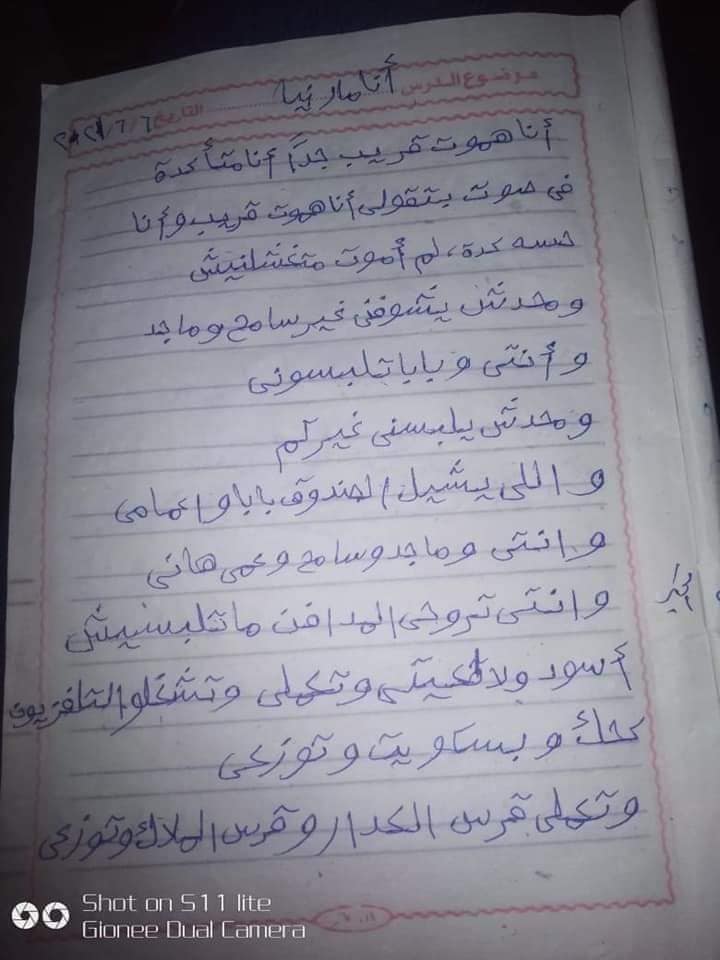 موضوع الدرس أنا مارنيا التاريخ ٢٠٢١/٦/٦
أنا هموت قريب جداً أنا متأكدة
في صوت بتقولي أنا هموت قريب وأنا
حسه كدة، لم أموت متغسلنيش
ومحدش يشوفني غير سامح وماجد
وأنتي وبابا تلبسوني
ومحدش يلبسني غيركم
واللي يشيل الصندوق بابا واعمامي
وانتي وماجد وسامح وعمي هاني
وانتي تروحي المدافن ماتلبسيش
أسود ولا تعيتي وتعملي وتشغلو التلفزيون
كحك وبسكويت وتوزعي
وتعملي قرس الكدار وقرس الملاك وتوزعي
Shot on S11 lite
Gionee Dual Camera